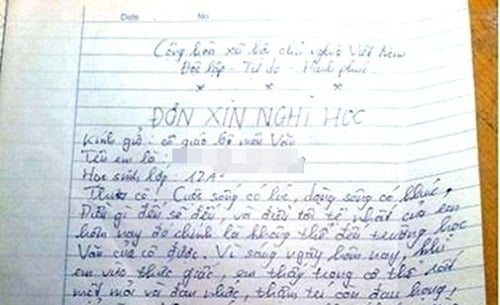 Date No
Cộng hòa xã hội chủ nghĩa Việt Nam
Độc lập - Tự do - Hạnh phúc
× × ×
ĐƠN XIN NGHỈ HỌC
Kính gửi: cô giáo bộ môn Văn
Tên em là:
Học sinh lớp: 12A
Thưa cô! Cuộc sống có lúc, dòng sông có khúc,
Điều gì đến sẽ đến, và điều tồi tệ nhất của em
hôm nay đó chính là không thể đến trường học
Văn của cô được. Vì sáng ngày hôm nay, khi
em vừa thức giấc, em thấy trong cơ thể rất
mệt mỏi và đau nhức, thậm trí còn đau họng,